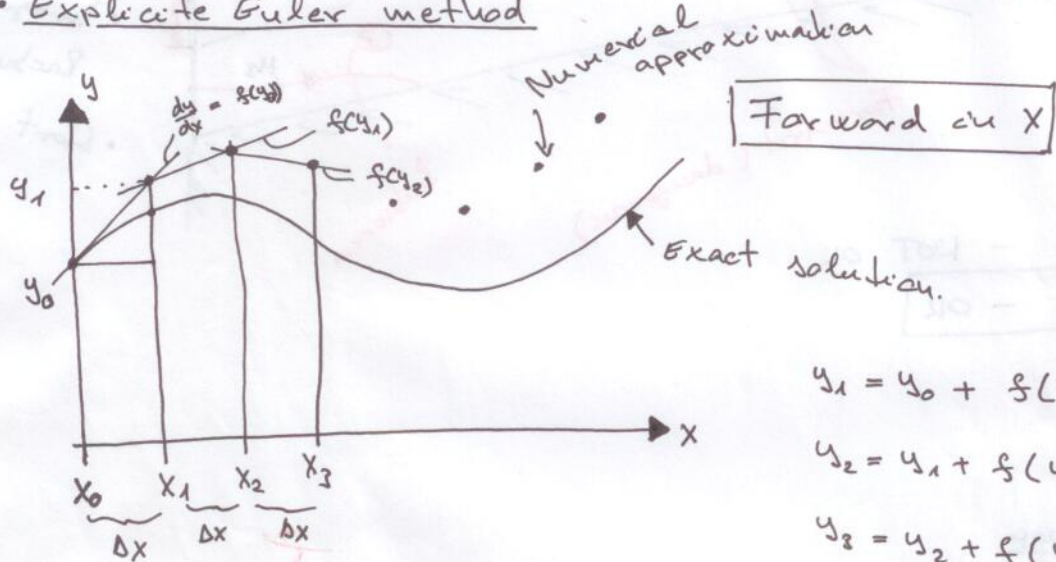 Explicite Euler method
Numerical
approximation
Forward in X
y
dy/dx = f(y₀)
f(y₁)
f(y₂)
y₁
y₀
Exact solution.
X
X₀ X₁ X₂ X₃
Δx Δx Δx
y₁ = y₀ + f(
y₂ = y₁ + f(
y₃ = y₂ + f(